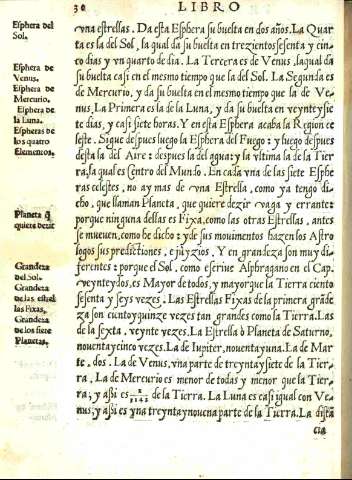 30 LIBRO
Esphera del
Sol.
Esphera de
Venus.
Esphera de
Mercurio.
Esphera de
la Luna.
Espheras de
los quatro
Elementos.
Planeta q̃
quiere dezir
Grandeza
del Sol.
Grandeza
de las estrellas
las Fixas.
Grandeza
de los siete
Planetas.
vna estrellas. Da esta Esphera su buelta en dos años. La Quar
ta es la del Sol, la qual da su buelta en trezientos sesenta y cin-
co dias y vn quarto de dia. La Tercera es de Venus, la qual da
su buelta casi en el mesmo tiempo que la del Sol. La Segunda es
de Mercurio, y da su buelta en el mesmo tiempo que la de Ve-
nus. La Primera es la de la Luna, y da su buelta en veynte y sie
te dias, y casi siete horas. Y en esta Esphera acaba la Region ce
leste. Sigue despues luego la Esphera del Fuego: y luego despues
desta la del Aire: despues la del agua: y la vltima la de la Tier
ra, la qual es Centro del Mundo. En cada vna de las siete Esphe
ras celestes, no ay mas de vna Estrella, como ya tengo di-
cho, que llaman Planeta, que quiere dezir vaga y errante:
porque ninguna dellas es Fixa, como las otras Estrellas, antes
se mueuen, como he dicho: y de sus mouimentos hazen los Astro
logos sus predictiones, e juyzios. Y en grandeza son muy di-
ferentes: porque el Sol, como escriue Alphragano en el Cap.
veynte y dos, es Mayor de todos, y mayor que la Tierra ciento
sesenta y seys vezes. Las Estrellas Fixas de la primera grāde
za son ciento y quinze vezes tan grandes como la Tierra. Las
de la sexta, veynte vezes. La Estrella ò Planeta de Saturno,
nouenta y cinco vezes. La de Iupiter, nouenta y una. La de Mar
te, dos. La de Venus, vna parte de treynta y siete de la Tier-
ra. La de Mercurio es menor de todas y menor que la Tier-
ra; y assi es de la Tierra. La Luna es casi igual con Ve-
nus; y assi es vna treynta y nouena parte de la Tierra. La dista
cia